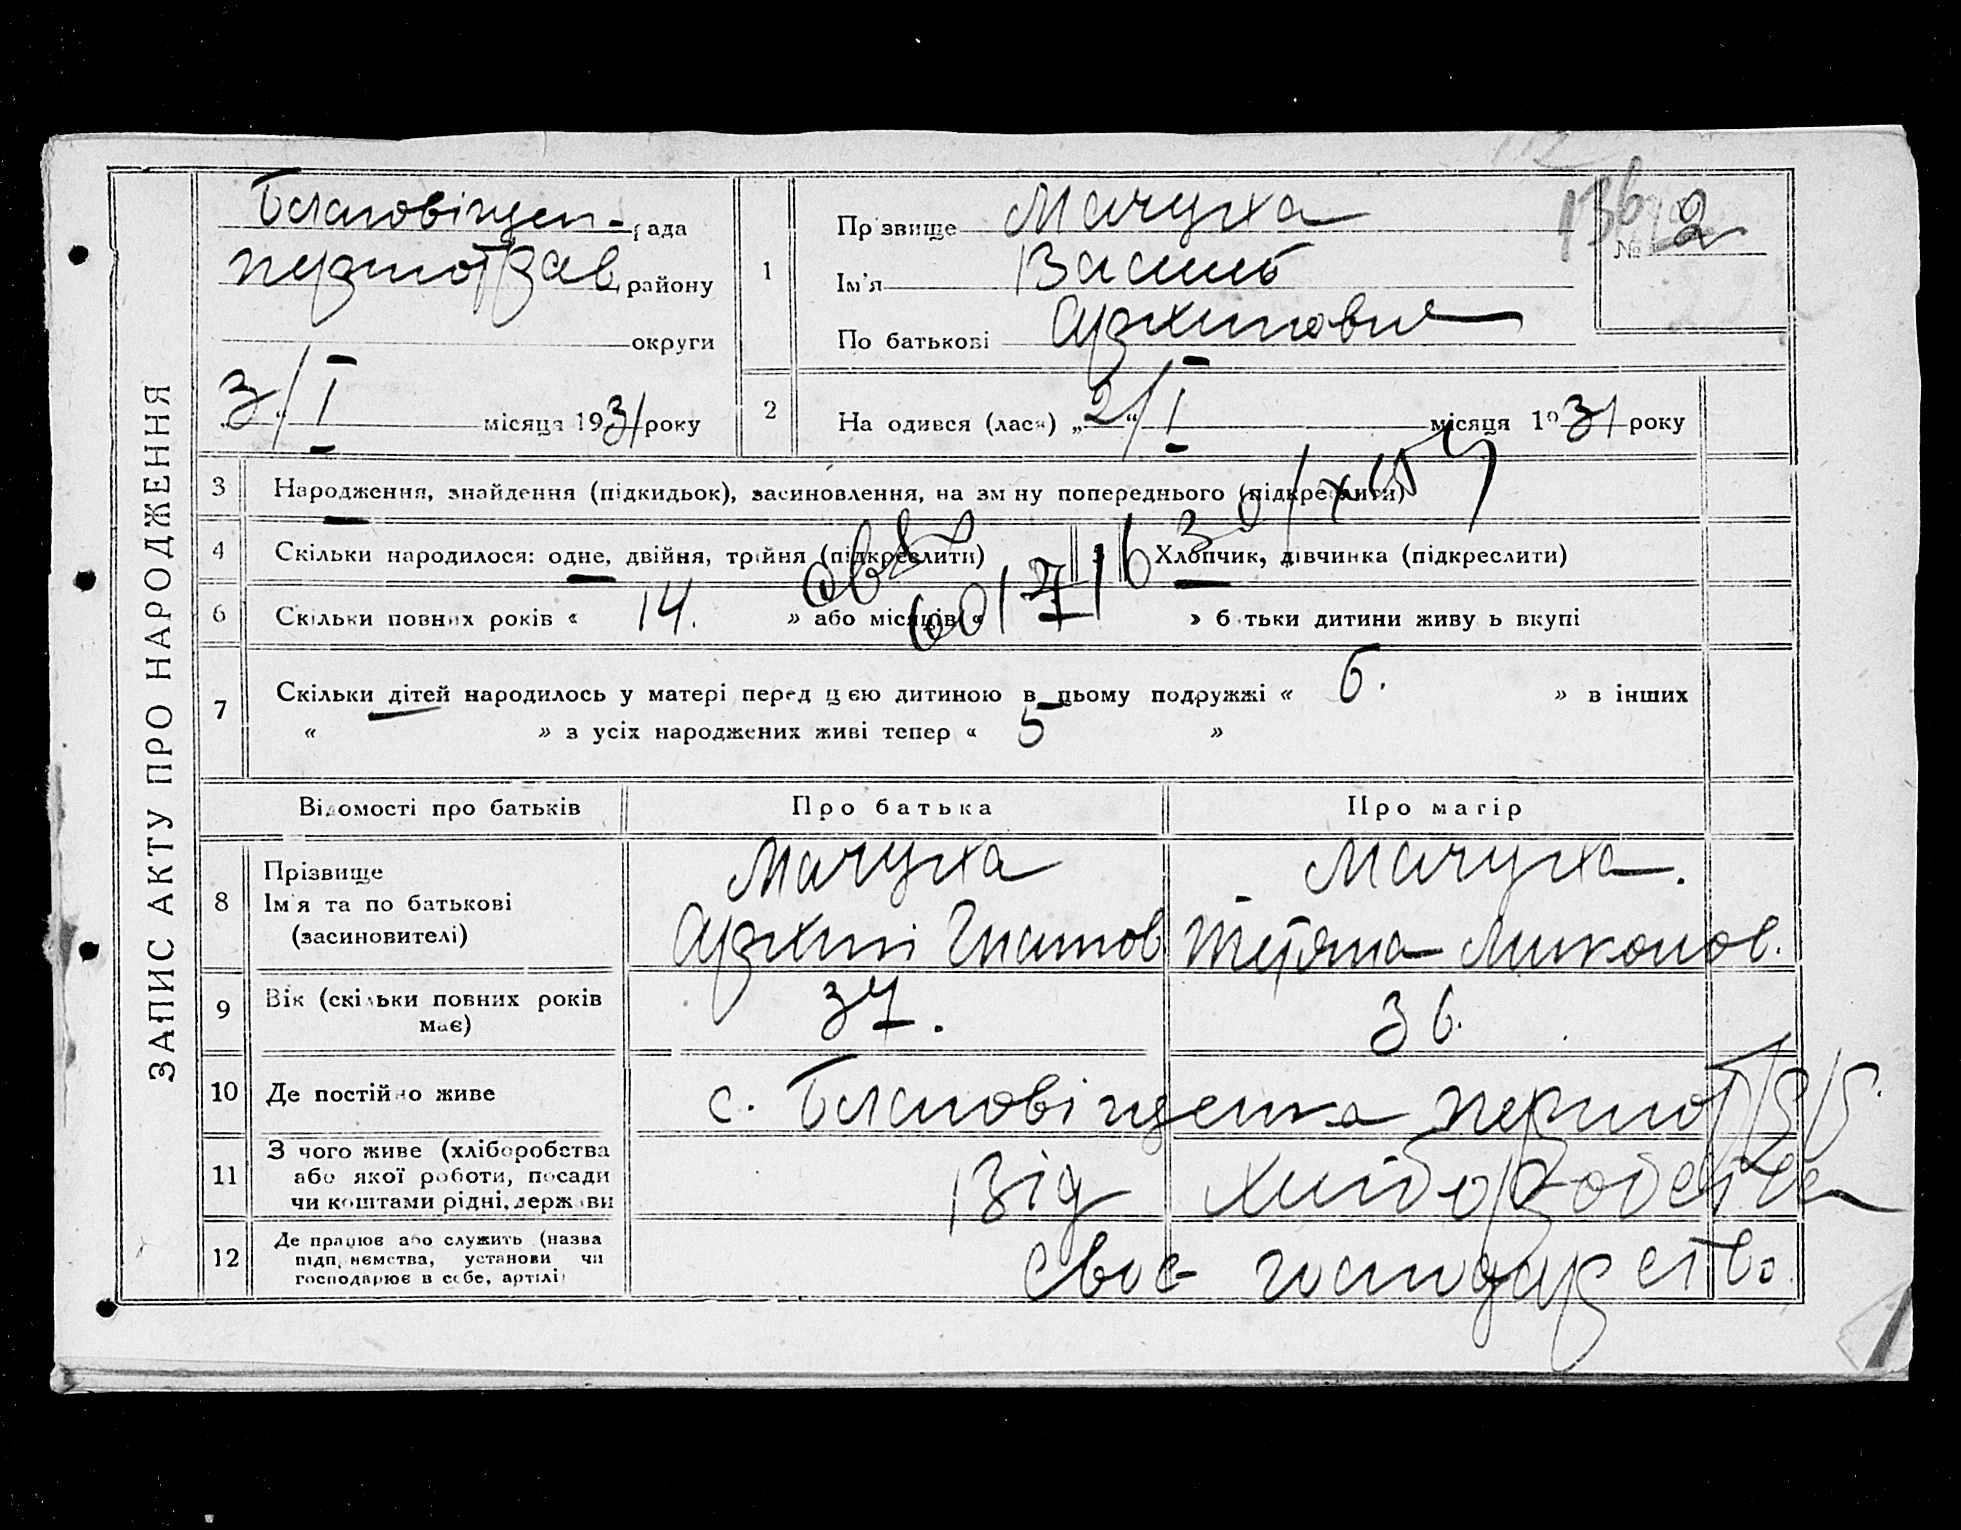 ЗАПИС АКТУ ПРО НАРОДЖЕННЯ
Благовіщен- рада
першотрав району
округи
3/I місяця 1931 року
1
Прізвище Мачуха
Ім'я Василь
По батькові Архипович
№ 2
2
На одився (лася) „2/I“ місяця 1931 року
3 Народження, знайдення (підкидьок), засиновлення, на зм ну попереднього (підкреслити)
4 Скільки народилося: одне, двійня, трійня (підкреслити)
5 Хлопчик, дівчинка (підкреслити)
6 Скільки повних років « 14. » або місяців « » б тьки дитини живу ь вкупі
7 Скільки дітей народилось у матері перед цією дитиною в цьому подружжі « 6. » в інших
« » з усіх народжених живі тепер « 5 »
Відомості про батьків Про батька Про матір
8 Прізвище
Ім'я та по батькові
(засиновителі)
Мачуха
Архип Гнатов
Мачуха.
Тетяна Миколов.
9 Вік (скільки повних років
має)
37.
36.
10 Де постійно живе с. Благовіщенка першот
11 З чого живе (хліборобства
або якої роботи, посади
чи коштами рідні, держави
Від хліборобства
12 Де працює або служить (назва
підприємства, установи чи
господарює в себе, артілі)
своє господарство.